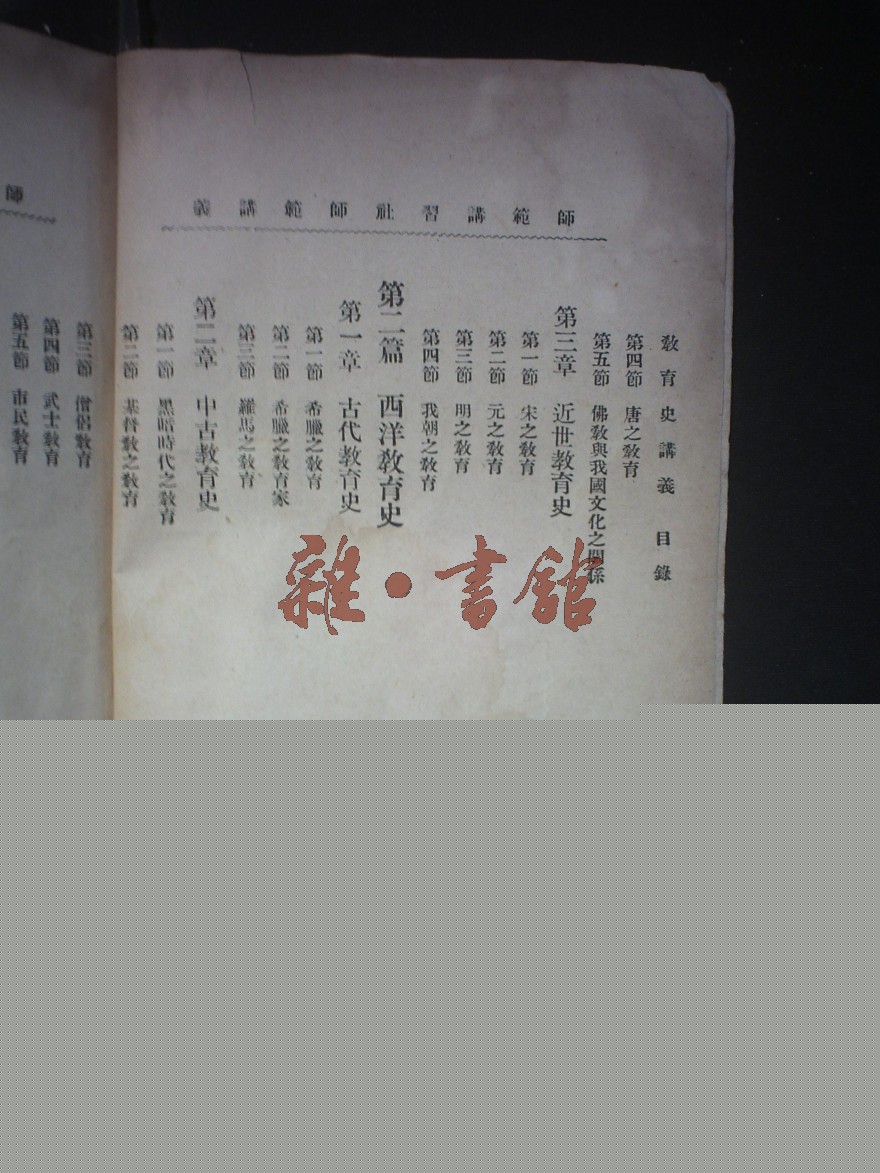 師範講習社師範講義
教育史講義 目錄
第四節 唐之教育
第五節 佛教與我國文化之關係
第三章 近世教育史
第一節 宋之教育
第二節 元之教育
第三節 明之教育
第四節 我朝之教育
第二篇 西洋教育史
第一章 古代教育史
第一節 希臘之教育
第二節 希臘之教育家
第三節 羅馬之教育
第二章 中古教育史
第一節 黑暗時代之教育
第二節 基督教之教育
師
第三節 僧侶教育
第四節 武士教育
第五節 市民教育
雜·書館